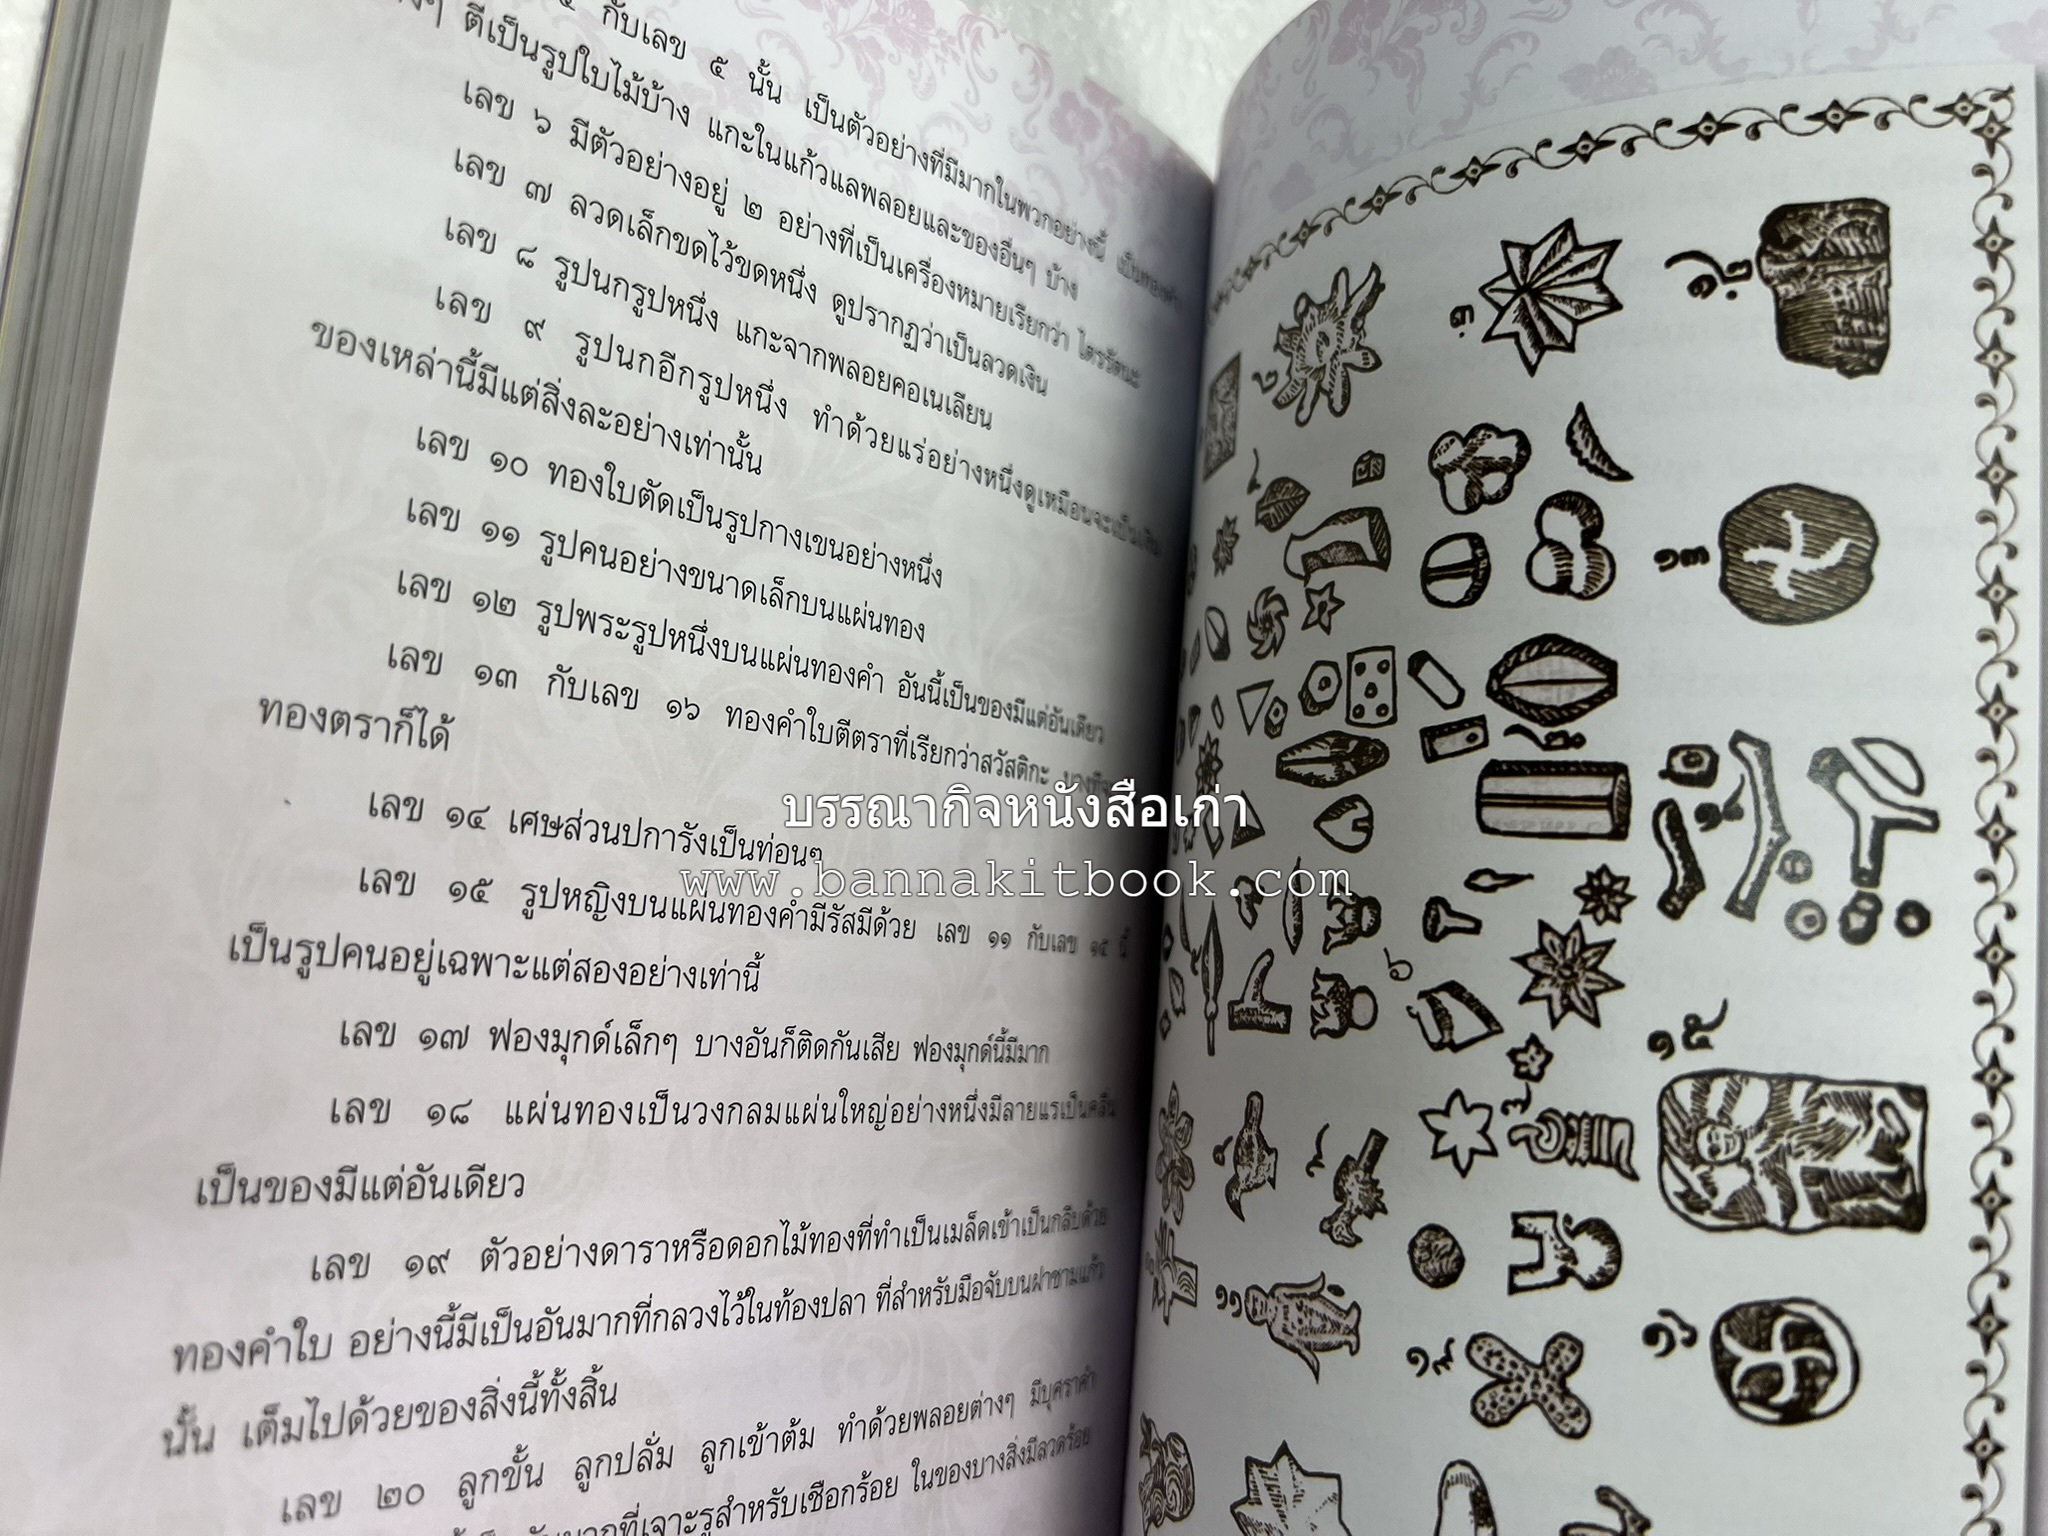 กับเลข ๕ นั้น เป็นตัวอย่างที่มีมากในพวกอย่างนี้
ตีเป็นรูปใบไม้บ้าง แกะในแก้วแลพลอยและของอื่นๆ บ้าง
เลข ๖ มีตัวอย่างอยู่ ๒ อย่างที่เป็นเครื่องหมายเรียกว่า ไตรรัตนะ
เลข ๗ ลวดเล็กขดไว้ขดหนึ่ง ดูปรากฏว่าเป็นลวดเงิน
เลข ๘ รูปนกรูปหนึ่ง แกะจากพลอยคอเนเลียน
เลข ๙ รูปนกอีกรูปหนึ่ง ทำด้วยแร่อย่างหนึ่งดูเหมือนจะเป็น
ของเหล่านี้มีแต่สิ่งละอย่างเท่านั้น
เลข ๑๐ ทองใบตัดเป็นรูปกางเขนอย่างหนึ่ง
เลข ๑๑ รูปคนอย่างขนาดเล็กบนแผ่นทอง
เลข ๑๒ รูปพระรูปหนึ่งบนแผ่นทองคำ อันนี้เป็นของมีแต่อันเดียว
เลข ๑๓ กับเลข ๑๖ ทองคำใบตีตราที่เรียกว่าสวัสติกะ
ทองตราก็ได้
เลข ๑๔ เศษส่วนปการังเป็นท่อนๆ
เลข ๑๕ รูปหญิงบนแผ่นทองคำมีรัสมีด้วย เลข ๑๑ กับเลข ๑๕ นี้
เป็นรูปคนอยู่เฉพาะแต่สองอย่างเท่านี้
เลข ๑๗ ฟองมุกด์เล็กๆ บางอันก็ติดกันเสีย ฟองมุกด์นี้มีมาก
เลข ๑๘ แผ่นทองเป็นวงกลมแผ่นใหญ่อย่างหนึ่งมีลายแรเป็นคลื่น
เป็นของมีแต่อันเดียว
เลข ๑๙ ตัวอย่างดาราหรือดอกไม้ทองที่ทำเป็นเมล็ดเข้าเป็นกลีบด้วย
ทองคำใบ อย่างนี้มีเป็นอันมากที่กลวงไว้ในท้องปลา ที่สำหรับมือจับบนฝาชามแก้ว
นั้น เต็มไปด้วยของสิ่งนี้ทั้งสิ้น
เลข ๒๐ ลูกขั้น ลูกปลั่ม ลูกเข้าต้ม ทำด้วยพลอยต่างๆ มีบุศราคำ
ที่เจาะรูสำหรับเชือกร้อย ในของบางสิ่งมีลวดร้อย
บรรณากิจหนังสือเก่า
www.bannakitbook.com
๑๒
๓
๒
๕
๑
๑๓
๒๐
๑๔
๖
๑๕
๗
๘
๙
๑๐
๑๑
๑๖